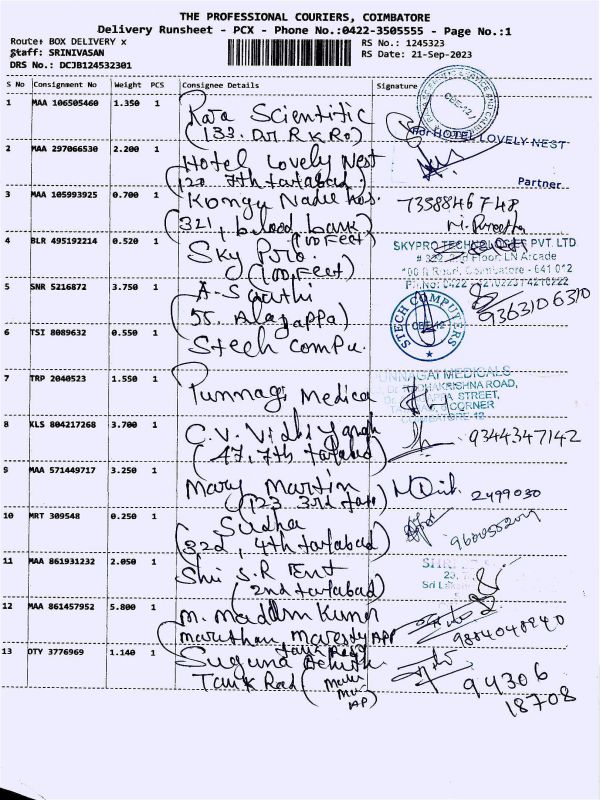 THE PROFESSIONAL COURIERS, COIMBATORE
Delivery Runsheet - PCX - Phone No.:0422-3505555 - Page No.:1
Route: BOX DELIVERY x
Staff: SRINIVASAN
DRS No.: DCJB124532301
RS No.: 1245323
RS Date: 21-Sep-2023
S No Consignment No Weight PCS Consignee Details Signature
1 MAA 106505460 1.350 1 Rara Scientific
(133. Dr R K Ro)
for HOTEL LOVELY NEST
Partner
2 MAA 297066530 2.200 1 Hotel Lovely Nest
(120 7th tatabad)
3 MAA 105993925 0.700 1 Kongu Nadu hos. 7358846748
(321, blood bank)
(100 Feet)
4 BLR 495192214 0.520 1 Sky Pro.
(100 Feet)
SKYPRO TECHNOLOGIES PVT. LTD
Floor, LN Arcade
Coimbatore - 641 012
5 SNR 5216872 3.750 1 A-Sarathi 9363106310
(55. Alagappa)
6 TSI 8089632 0.550 1 Stech Compu.
STECH COMPUTERS
7 TRP 2040523 1.550 1 Punnagi Medica
UNNAGAI MEDICALS
STREET,
CORNER
8 KLS 804217268 3.700 1 C.V. Vidhiyangh 9344347142
(47, 7th tatabad)
9 MAA 571449717 3.250 1 Mary Martin 2499030
(123 3rd tata)
10 MRT 309548 0.250 1 Sudha
(32d, 4th tatabad)
11 MAA 861931232 2.050 1 Shri S.R Ent
(2nd tatabad)
12 MAA 861457952 5.800 1 M. Madan Kumar 9884048240
Marutham Majesty APP
Tank Road
13 OTY 3776969 1.140 1 Suguna
Tank Road 94306
18708